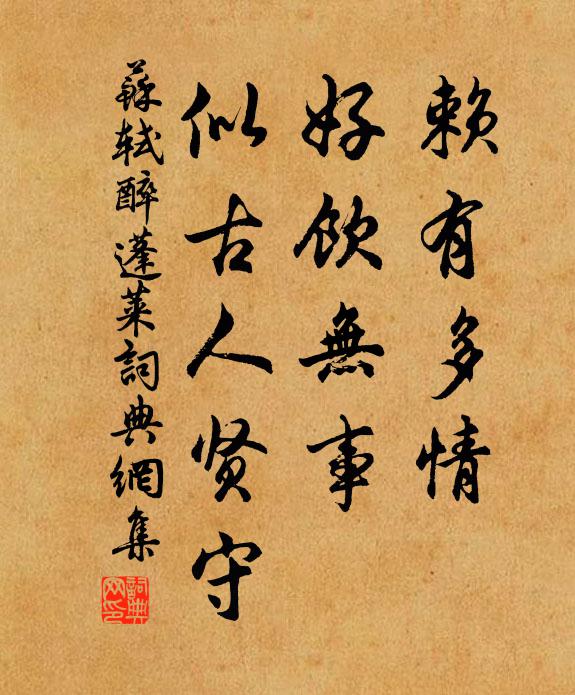 赖有多情
好饮無事
似古人贤守
蘇軾醉蓬萊詞典網集
詞典网印